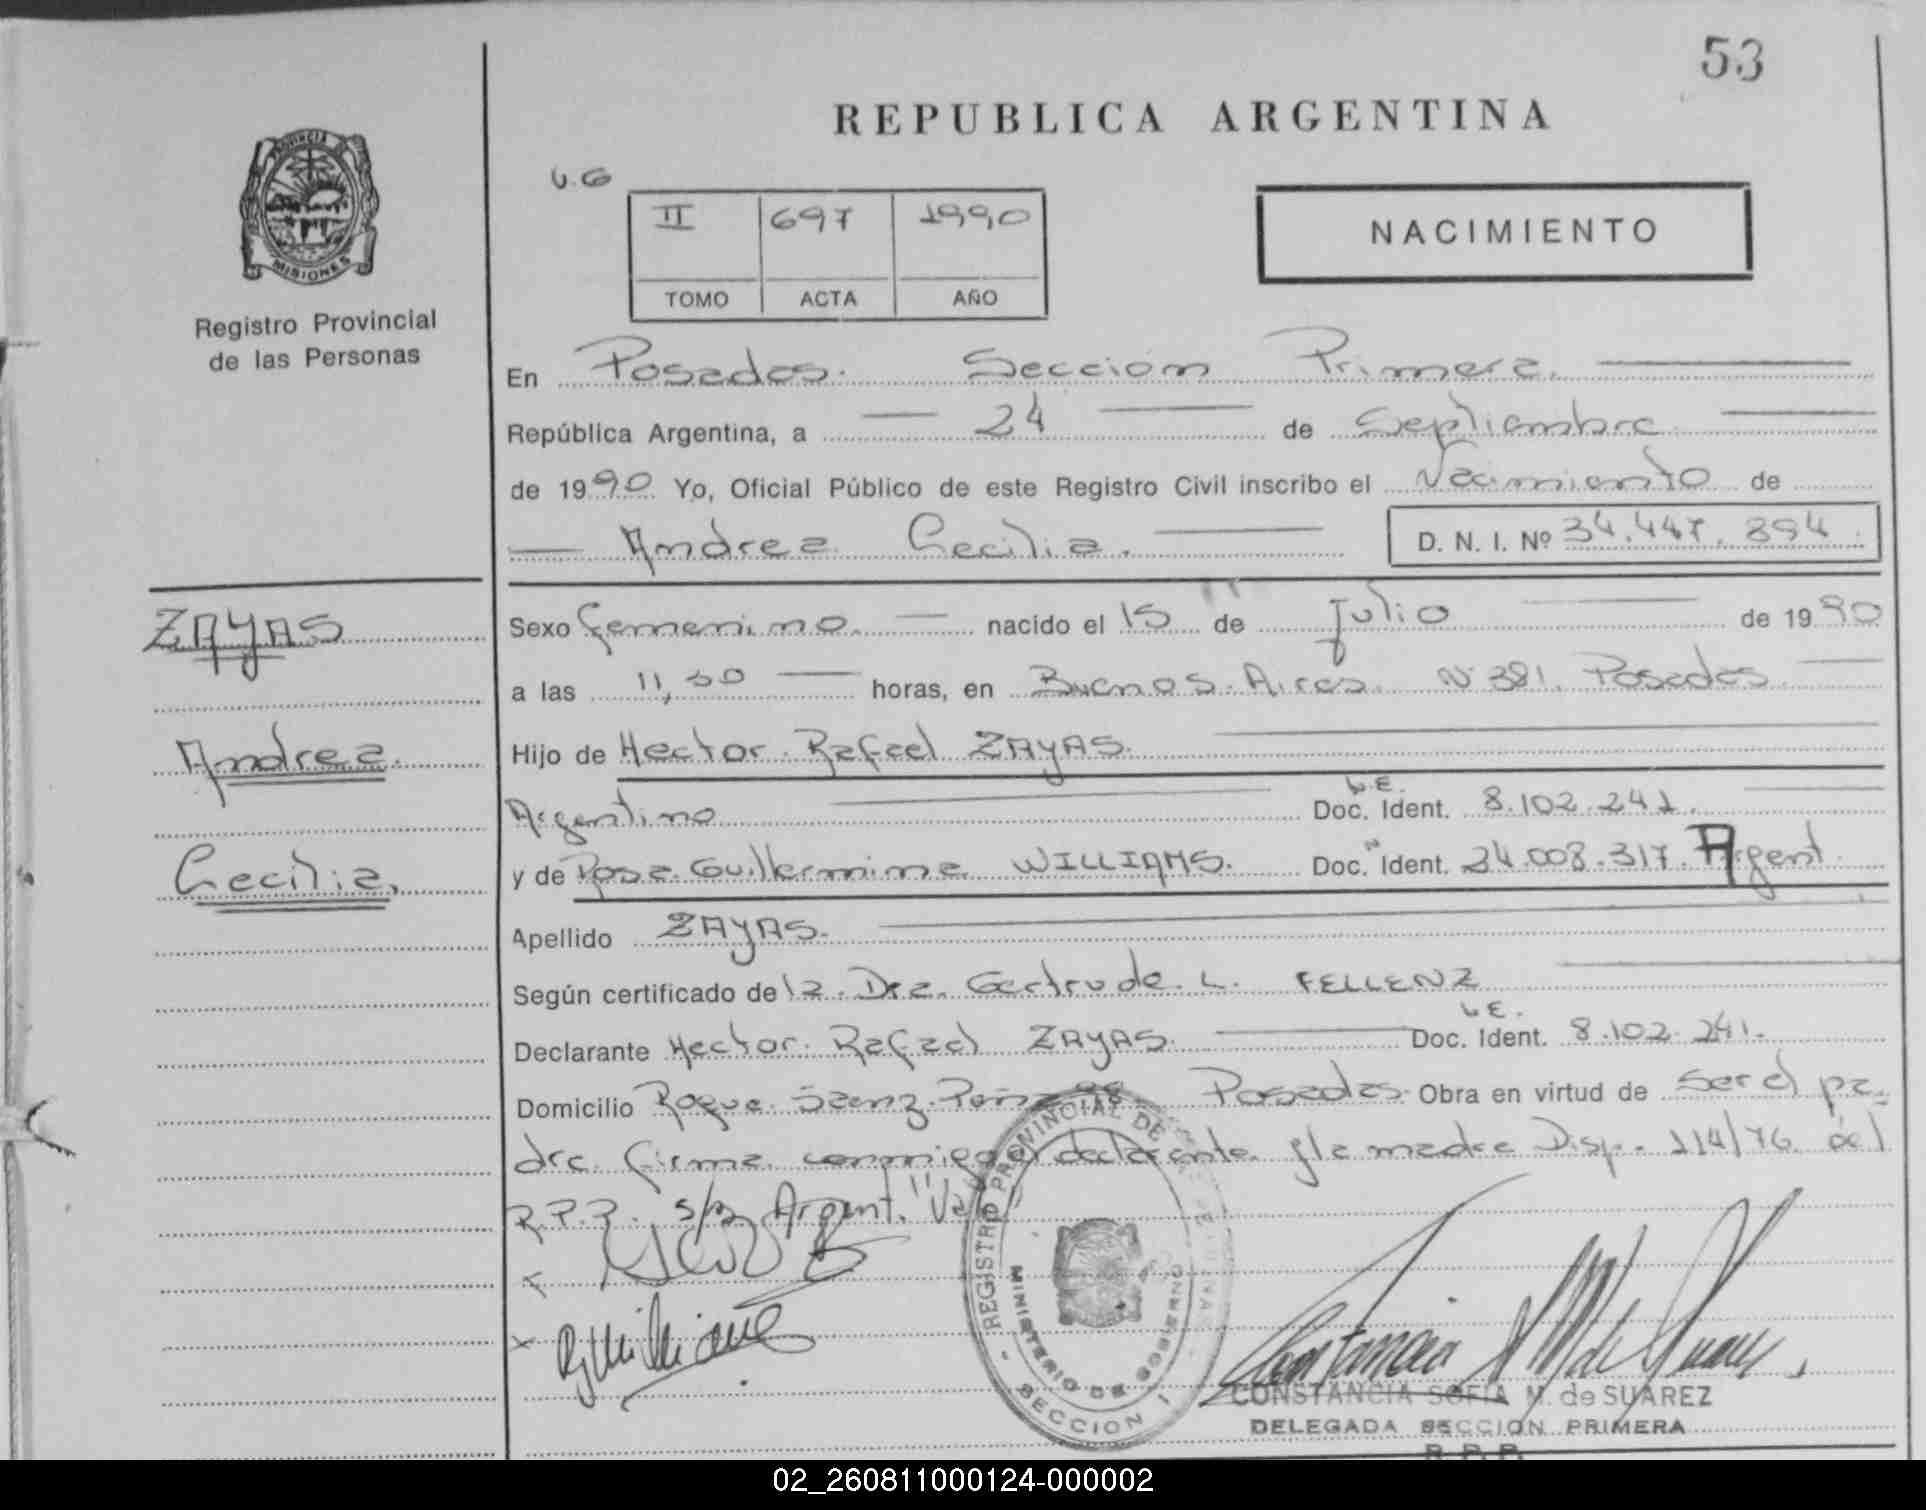 53
REPUBLICA ARGENTINA
PROVINCIA DE
MISIONES
Registro Provincial
de las Personas
II 697 1990
TOMO ACTA AÑO
NACIMIENTO
En Posadas. Sección Primera.
República Argentina, a 24 de Septiembre
de 1990 Yo, Oficial Público de este Registro Civil inscribo el Nacimiento de
Andrea Cecilia. D. N. I. Nº 34.447.894
ZAYAS
Andrea
Cecilia.
Sexo femenino. nacido el 15 de Julio de 1990
a las 11,30 horas, en Buenos Aires N 381. Posadas
Hijo de Hector Rafael ZAYAS.
L.E.
Argentino Doc. Ident. 8.102.241.
y de Rosa Guillermina WILLIAMS. Doc. Ident. 34.008.317. Argent.
Apellido ZAYAS.
Según certificado de la Dra. Gertrude. L. FELLENZ
L.E.
Declarante Hector Rafael ZAYAS. Doc. Ident. 8.102.241.
Domicilio Roque Saenz Peña Posadas. Obra en virtud de ser el pa-
dre. firma conmigo el declarante y la madre Disp. 114/76 del
R.P.P. s/r Argent. "Vale"
REGISTRO PROVINCIAL DE
MINISTERIO DE GOBIERNO
SECCION 1
CONSTANCIA SOFIA M. de SUAREZ
DELEGADA SECCION PRIMERA
R.P.P.
02_260811000124-000002